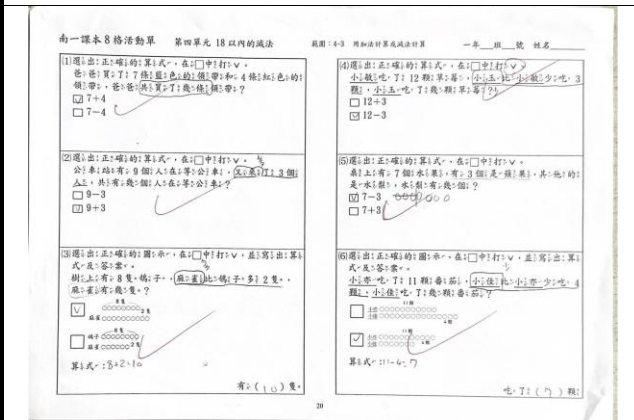 南一課本8格活動單 第四單元 18以內的減法 範圍:4-3 用加法計算或減法計算 一年__班__號 姓名______
(1)選出正確的算式,在□中打ˇ。
爸爸買了7條藍色的領帶和4條紅色的
領帶,爸爸共買了幾條領帶?
☑ 7+4
□ 7-4
(2)選出正確的算式,在□中打ˇ。
公車站有9個人在等公車,又來了3個
人,共有幾個人在等公車?
□ 9-3
☑ 9+3
(3)選出正確的圖示,在□中打ˇ,並寫出算
式及答案。
樹上有8隻鴿子,麻雀比鴿子多2隻,
麻雀有幾隻?
8隻
麻雀 2隻
鴿子 8隻
麻雀 2隻
算式:8+2=10
有(10)隻。
(4)選出正確的算式,在□中打ˇ。
小敏吃了12顆草莓,小玉比小敏少吃3
顆,小玉吃了幾顆草莓?
□ 12+3
☑ 12-3
(5)選出正確的算式,在□中打ˇ。
桌上有7個水果,有3個是蘋果,其他的
是水梨,水梨有幾個?
☑ 7-3
□ 7+3
(6)選出正確的圖示,在□中打ˇ,並寫出算
式及答案。
小亦吃了11顆番茄,小佳比小亦少吃4
顆,小佳吃了幾顆番茄?
11顆
4顆
11顆
4顆
算式:11-4=7
吃了(7)顆
20